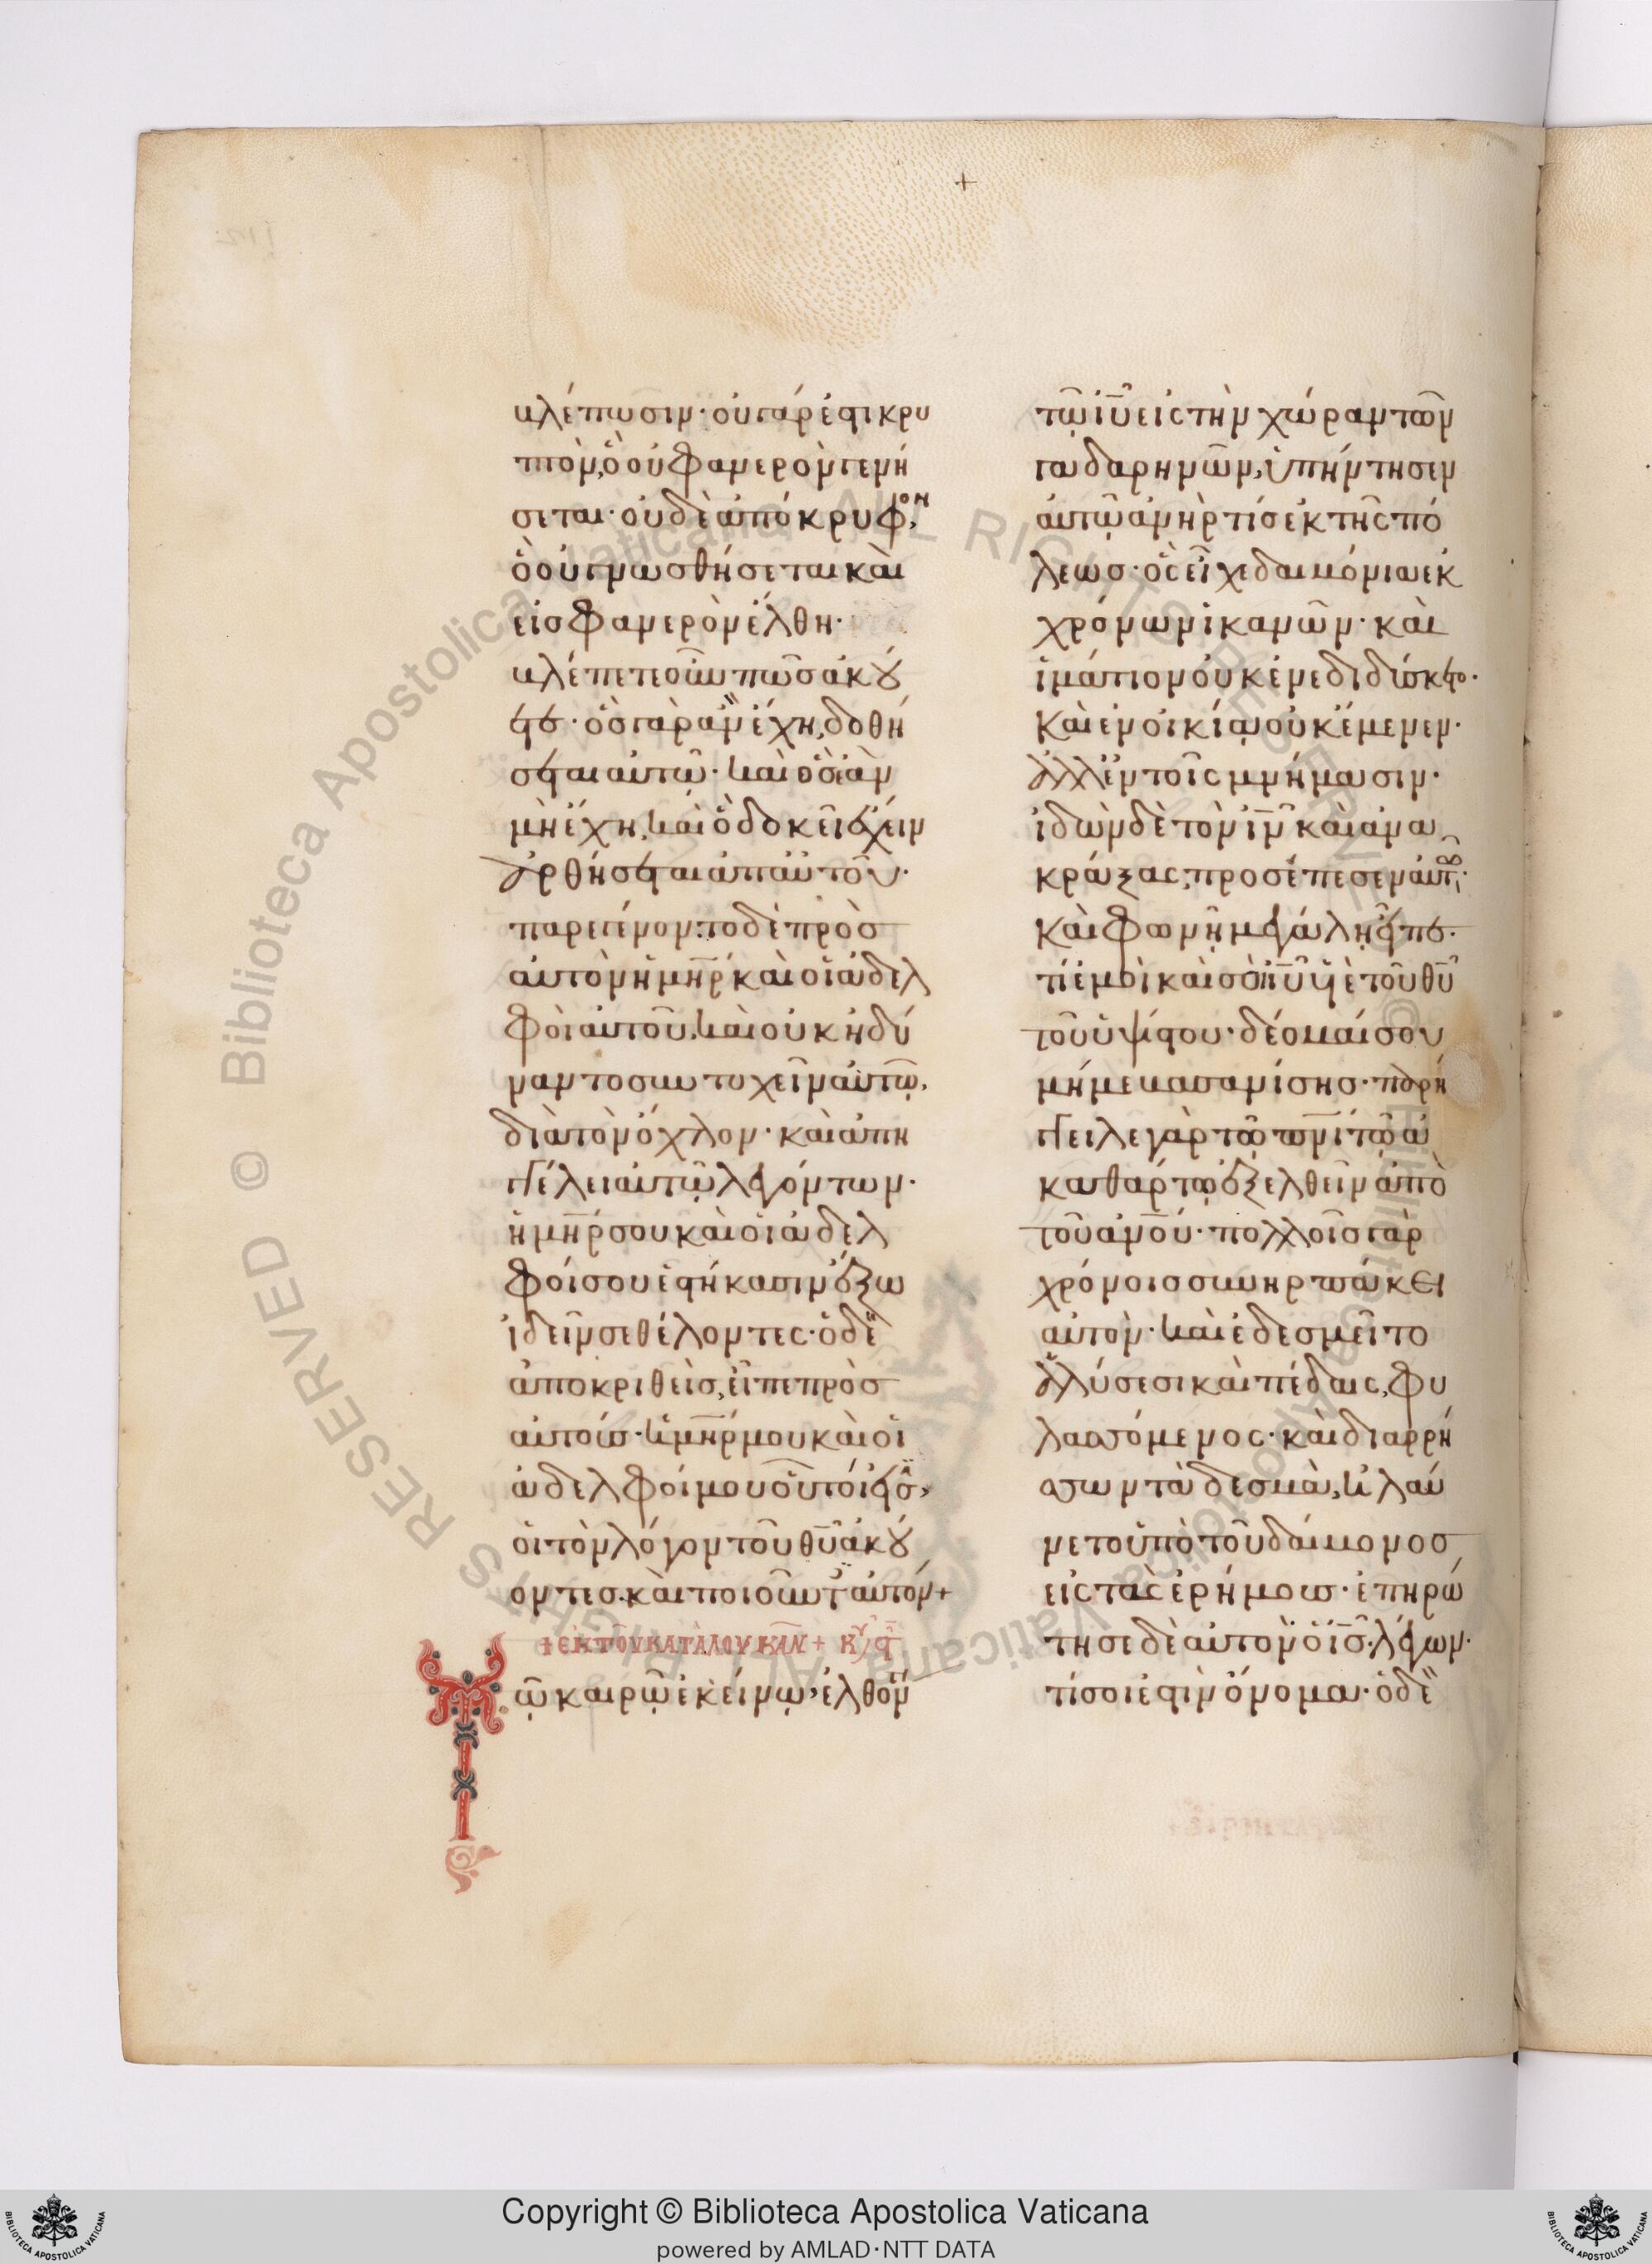 βλέπωσιν· οὐ γάρ ἐστι κρυ
πτὸν, ὃ οὐ φανερὸν γενή
σεται· οὐδὲ ἀπόκρυφον,
ὃ οὐ γνωσθήσεται καὶ
εἰσ φανερὸν ἔλθη·
βλέπετε οὖν πῶσ ἀκού
ετε· ὃσ γὰρ ἂν ἔχη, δοθή
σεται αὐτῶ· καὶ ὃσ ἐὰν
μὴ ἔχη, καὶ ὃ δοκεῖ ἔχειν
ἀρθήσεται ἀπ αὐτοῦ·
παρεγένοντο δὲ πρὸσ
αὐτὸν ἡ μηρ καὶ οἱ ἀδελ
φοὶ αὐτοῦ, καὶ οὐκ ἠδύ
ναντο συντυχεῖν αὐτῶ,
διὰ τὸν ὄχλον· καὶ ἀπη
γγέλει αὐτῶ λεγόντων·
ἡ μηρ σου καὶ οἱ ἀδελ
φοί σου ἑστήκασιν ἔξω
ἰδεῖν σε θέλοντες· ὁ δὲ
ἀποκριθεὶσ, εἶπε πρὸσ
αὐτούσ· ἡ μηρ μου καὶ οἱ
ἀδελφοί μου οὗτοί εἰσ,
οἱ τὸν λόγον τοῦ θυ ἀκού
οντεσ καὶ ποιοῦντ αὐτόν+
+ ἐκ τοῦ κατὰ λουκᾶν +
Τῶ καιρῶ ἐκείνω, ἐλθόντι
τῶ ιυ εἰς τὴν χώραν τῶν
γαδαρηνῶν, ὑπήντησεν
αὐτῶ ἀνὴρ τίσ ἐκ τῆς πό
λεωσ· ὃς εἶχε δαιμόνια ἐκ
χρόνων ἱκανῶν· καὶ
ἱμάτιον οὐκ ἐνεδιδύσκετο·
καὶ ἐν οἰκία οὐκ ἔμενεν·
ἀλλ ἐν τοῖς μνήμασιν·
ἰδὼν δὲ τὸν ιν καὶ ἀνα
κράξας, προσέπεσεν αὐτῶ·
καὶ φωνῆ μεγάλη εἶπε·
τί ἐμοὶ καὶ σοὶ ιυ υἱὲ τοῦ θυ
τοῦ ὑψίστου· δέομαί σου
μή με βασανίσησ· παρή
γγειλε γὰρ τῶ πνι τῶ ἀ
καθάρτω ἐξελθεῖν ἀπὸ
τοῦ ανου· πολλοῖσ γὰρ
χρόνοισ συνηρπάκει
αὐτὸν· καὶ ἐδεσμεῖτο
ἁλύσεσι καὶ πέδαις, φυ
λασσόμενος· καὶ διαρρή
σσων τὰ δεσμὰ, ἠλαύ
νετο ὑπὸ τοῦ δαίμονοσ
εἰς τὰς ἐρήμουσ· ἐπηρώ
τησε δὲ αὐτὸν ὁ ισ· λέγων·
τί σοι ἐστὶν ὄνομα· ὁ δὲ
Copyright © Biblioteca Apostolica Vaticana
powered by AMLAD·NTT DATA